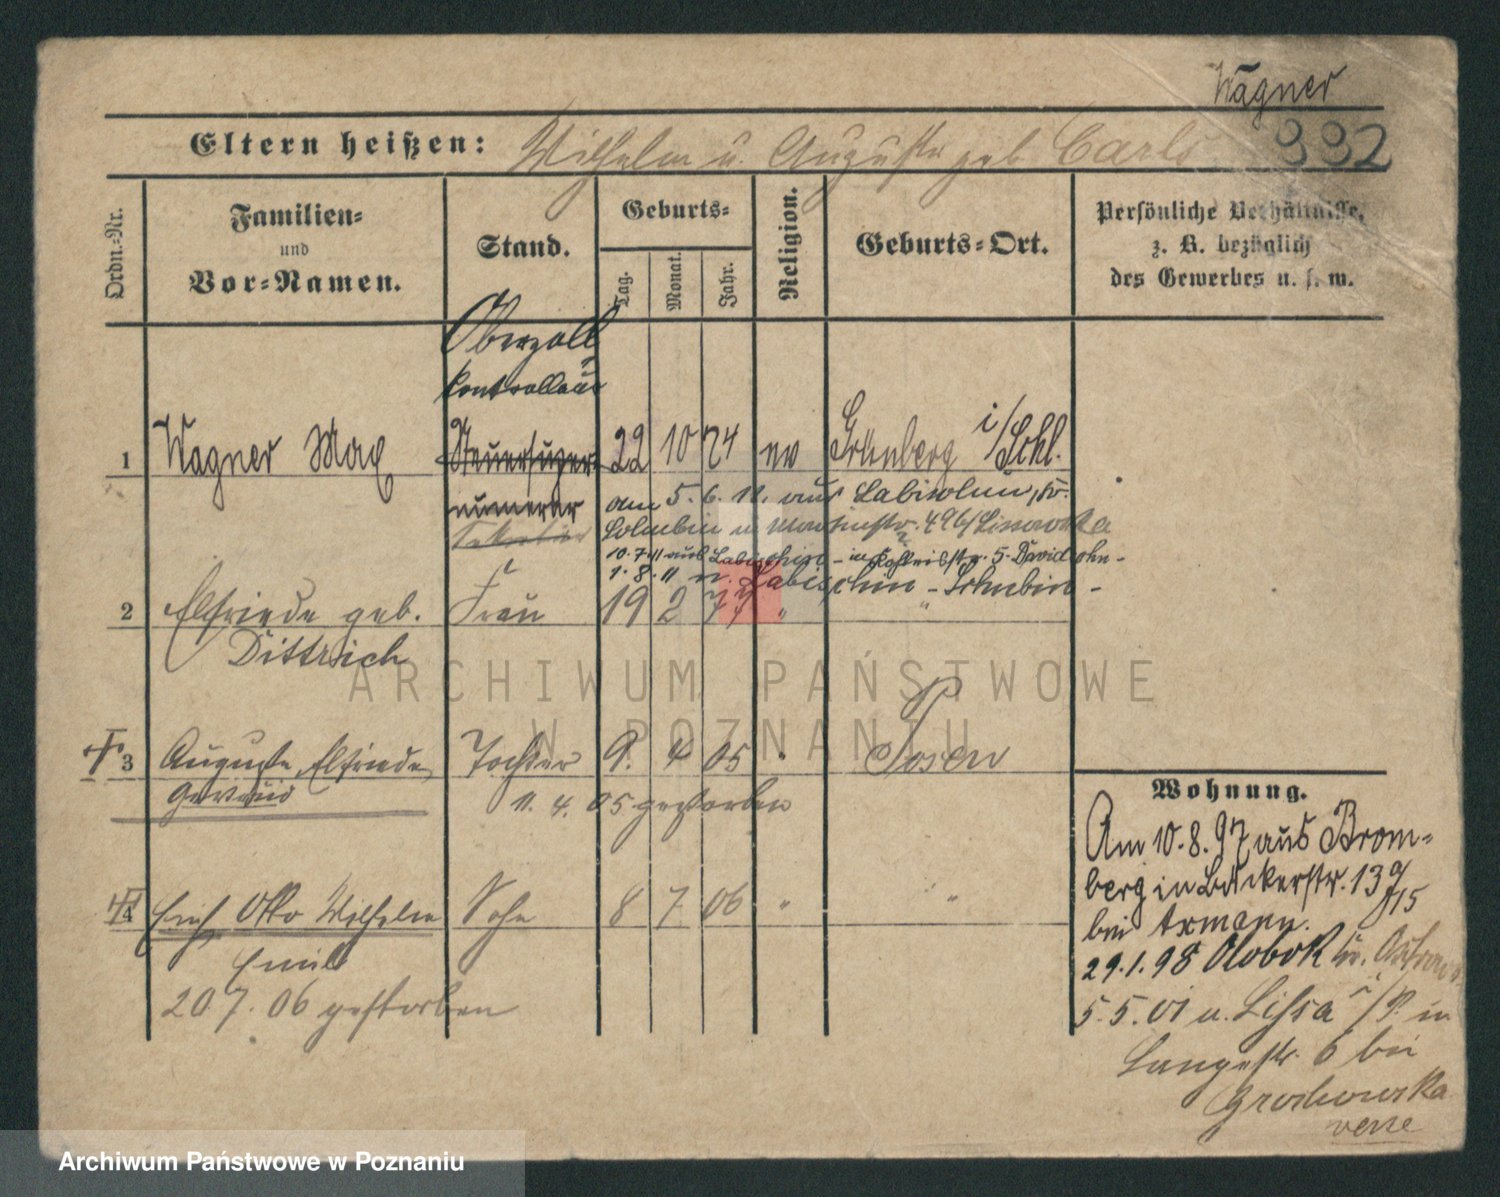 Wagner
Eltern heißen: Wilhelm u. Auguste geb Carls 332
Ordn.-Nr.
Familien-
und
Vor-Namen.
Stand.
Geburts-
Tag.
Monat.
Jahr.
Religion.
Geburts-Ort.
Persönliche Verhältnisse,
z. B. bezüglich
des Gewerbes u. s. w.
Oberzoll
kontrolleur
1 Wagner Max Steuersuper- 22 10 74 ev Grünberg i/Schl.
numerar
Sekretär
am 5. 6. 11. aus Labischin, Kr.
Schubin n. 496/
10.7.11 aus Labischin - 5.
1. 8. 11 n. Labischin - Schubin -
2 Elfriede geb. Frau 19 2 77 " "
Dittrich
ARCHIWUM PAŃSTWOWE
W POZNANIU
3 Auguste Elfriede Tochter 9. 4 05 " Posen
Gertrud 11. 4. 05 gestorben
4 Erich Otto Wilhelm Sohn 8 7 06 " "
Emil
20 7. 06 gestorben
Wohnung.
Am 10.8.97 aus Brom-
berg in Bäckerstr. 13 a
bei Axmann. 715
29.1.98 Olobok Kr.
5.5.01 v. Lissa i/P. in
Langestr. 6 bei
Grochowska
verte
Archiwum Państwowe w Poznaniu